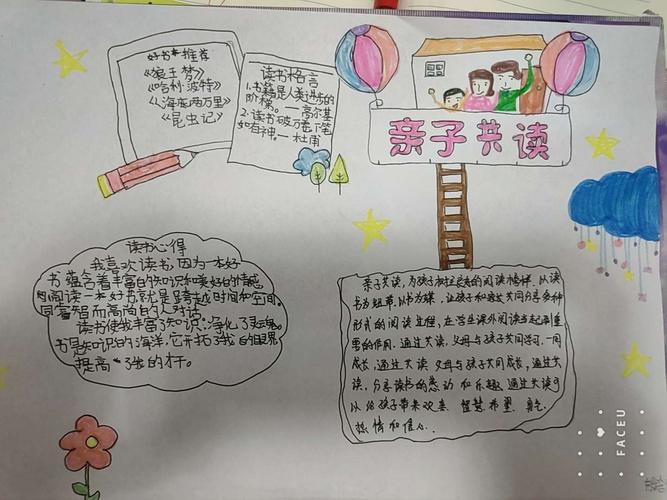 好书推荐
《狼王梦》
《哈利·波特》
《海底两万里》
《昆虫记》
读书格言
1.书籍是人类进步的
阶梯。—高尔基
2.读书破万卷下笔
如有神。—杜甫
亲子共读
读书心得
我喜欢读书,因为一本好
书蕴含着丰富的知识和美好的情感
阅读一本好书就是跨越时间和空间,
同睿智而高尚的人对话。
读书使我丰富了知识,净化了灵魂。
书是知识的海洋,它开拓了我的眼界
提高了我的才干。
亲子共读,为孩子树立良好的阅读榜样。以读
书为纽带,以书为媒,让孩子和家长共同分享多种
形式的阅读过程,在学生课外阅读当起到重
要的作用。通过共读,父母与孩子共同学习,一同
成长,通过共读 父母与孩子共同成长,通过共
读,分享读书的感动和乐趣,通过共读可
以给孩子带来欢喜 智慧 希望 勇气
热情和信心.
FACEU